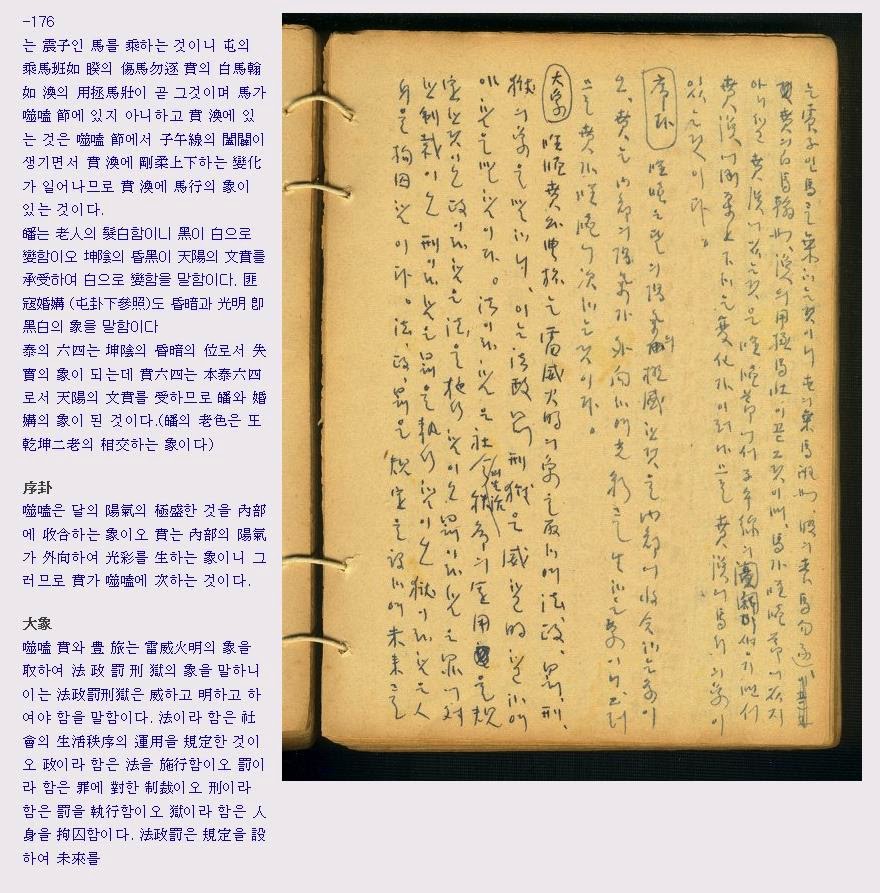 -176
는 震子인 馬를 乘하는 것이니 屯의
乘馬班如 睽의 傷馬勿逐 賁의 白馬翰
如 渙의 用拯馬壯이 곧 그것이며 馬가
噬嗑 節에 있지 아니하고 賁 渙에 있
는 것은 噬嗑 節에서 子午線의 闔闢이
생기면서 賁 渙에 剛柔上下하는 變化
가 일어나므로 賁 渙에 馬行의 象이
있는 것이다.
皤는 老人의 髮白함이니 黑이 白으로
變함이오 坤陰의 昏黑이 天陽의 文賁를
承受하여 白으로 變함을 말함이다. 匪
寇婚媾 (屯卦下參照)도 昏暗과 光明 卽
黑白의 象을 말함이다
泰의 六四는 坤陰의 昏暗의 位로서 失
實의 象이 되는데 賁六四는 本泰六四
로서 天陽의 文賁를 受하므로 皤와 婚
媾의 象이 된 것이다.(皤의 老色은 또
乾坤二老의 相交하는 象이다)
序卦
噬嗑은 달의 陽氣의 極盛한 것을 內部
에 收合하는 象이오 賁는 內部의 陽氣
가 外向하여 光彩를 生하는 象이니 그
러므로 賁가 噬嗑에 次하는 것이다.
大象
噬嗑 賁와 豊 旅는 雷威火明의 象을
取하여 法 政 罰 刑 獄의 象을 말하니
이는 法政罰刑獄은 威하고 明하고 하
여야 함을 말함이다. 法이라 함은 社
會의 生活秩序의 運用을 規定한 것이
오 政이라 함은 法을 施行함이오 罰이
라 함은 罪에 對한 制裁이오 刑이라
함은 罰을 執行함이오 獄이라 함은 人
身을 拘囚함이다. 法政罰은 規定을 設
하여 未來를
는 震子인 馬를 乘하는 것이니 屯의 乘馬班如, 睽의 馬勿逐
賁의 白馬翰如, 渙의 用拯馬壯이 곧 그것이며, 馬가 噬嗑 節에 있지
아니하고 賁 渙에 있는 것은 噬嗑 節에서 子午線의 闔闢이 생기면서
賁 渙에 剛柔上下하는 變化가 일어나므로 賁 渙에 馬行의 象이
있는 것이다.
序卦 噬嗑은 달의 陽氣의 極盛한 것을 內部에 收合하는 象이
오, 賁는 內部의 陽氣가 外向하여 光彩를 生하는 象이니 그러
므로 賁가 噬嗑에 次하는 것이다.
大象 噬嗑 賁와 豊 旅는 雷威火明의 象을 取하여 法, 政, 罰, 刑,
獄의 象을 말하니, 이는 法政罰刑獄은 威하고 明하고 하여
야 함을 말함이다. 法이라 함은 社會의 生活秩序의 運用을 規
定한 것이오 政이라 함은 法을 施行함이오 罰이라 함은 罪에 對
한 制裁이오 刑이라 함은 罰을 執行함이오 獄이라 함은 人
身을 拘囚함이다. 法, 政, 罰은 規定을 設하여 未來를